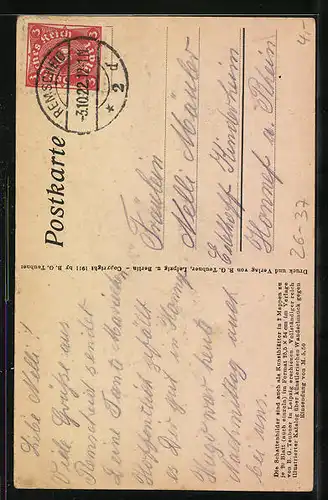 Postkarte
REMSCHEID
-3.10.22
* 2 d
Deutsches Reich
3 Mark 3
4,-
Fräulein
Nelli Mäuler
Kinderheim
Honnef a Rhein
26-37
Druck und Verlag von B. G. Teubner, Leipzig u. Berlin · Copyright 1911 by B. G. Teubner
Die Schattenbilder sind auch als Kunstblätter in 2 Mappen zu
je 10 Blatt (auch einzeln) im Format im Verlage
von B. G. Teubner in Leipzig erschienen. Vollständiger reich
illustrierter Katalog über künstlerischen Wandschmuck gegen
Einsendung von M.
Liebe Nelli!
Viele Grüße aus
Remscheid sendet
Tante
Hoffentlich gefällt
es Dir gut in Honnef
nachmittag auch
bei uns.